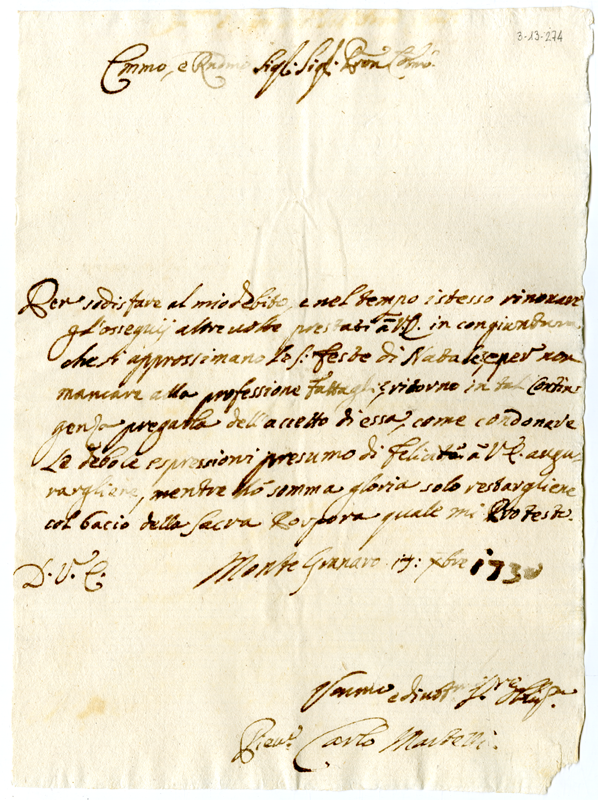 3-13-274
Emmo, e Rmo Sigr: Sigr: Pron Colmo
Per sodisfare al mio debito, e nel tempo istesso rinovare
gl'ossequij altre volte prestati à V.E. in congiuntura,
che si approssimano le S: feste di Natale, e per non
mancare alla professione fattagli, ritorno in tal Contin=
genza pregarla dell'accetto di essa, come condonare
le debole espressioni presumo di felicità à V.E. augu=
rargliene, mentre hò somma gloria solo restargliene
col bacio della Sacra Porpora quale mi Protesto.
D. V. E.
Monte Granaro 17: Xbre 1730
Carlo Martelli.